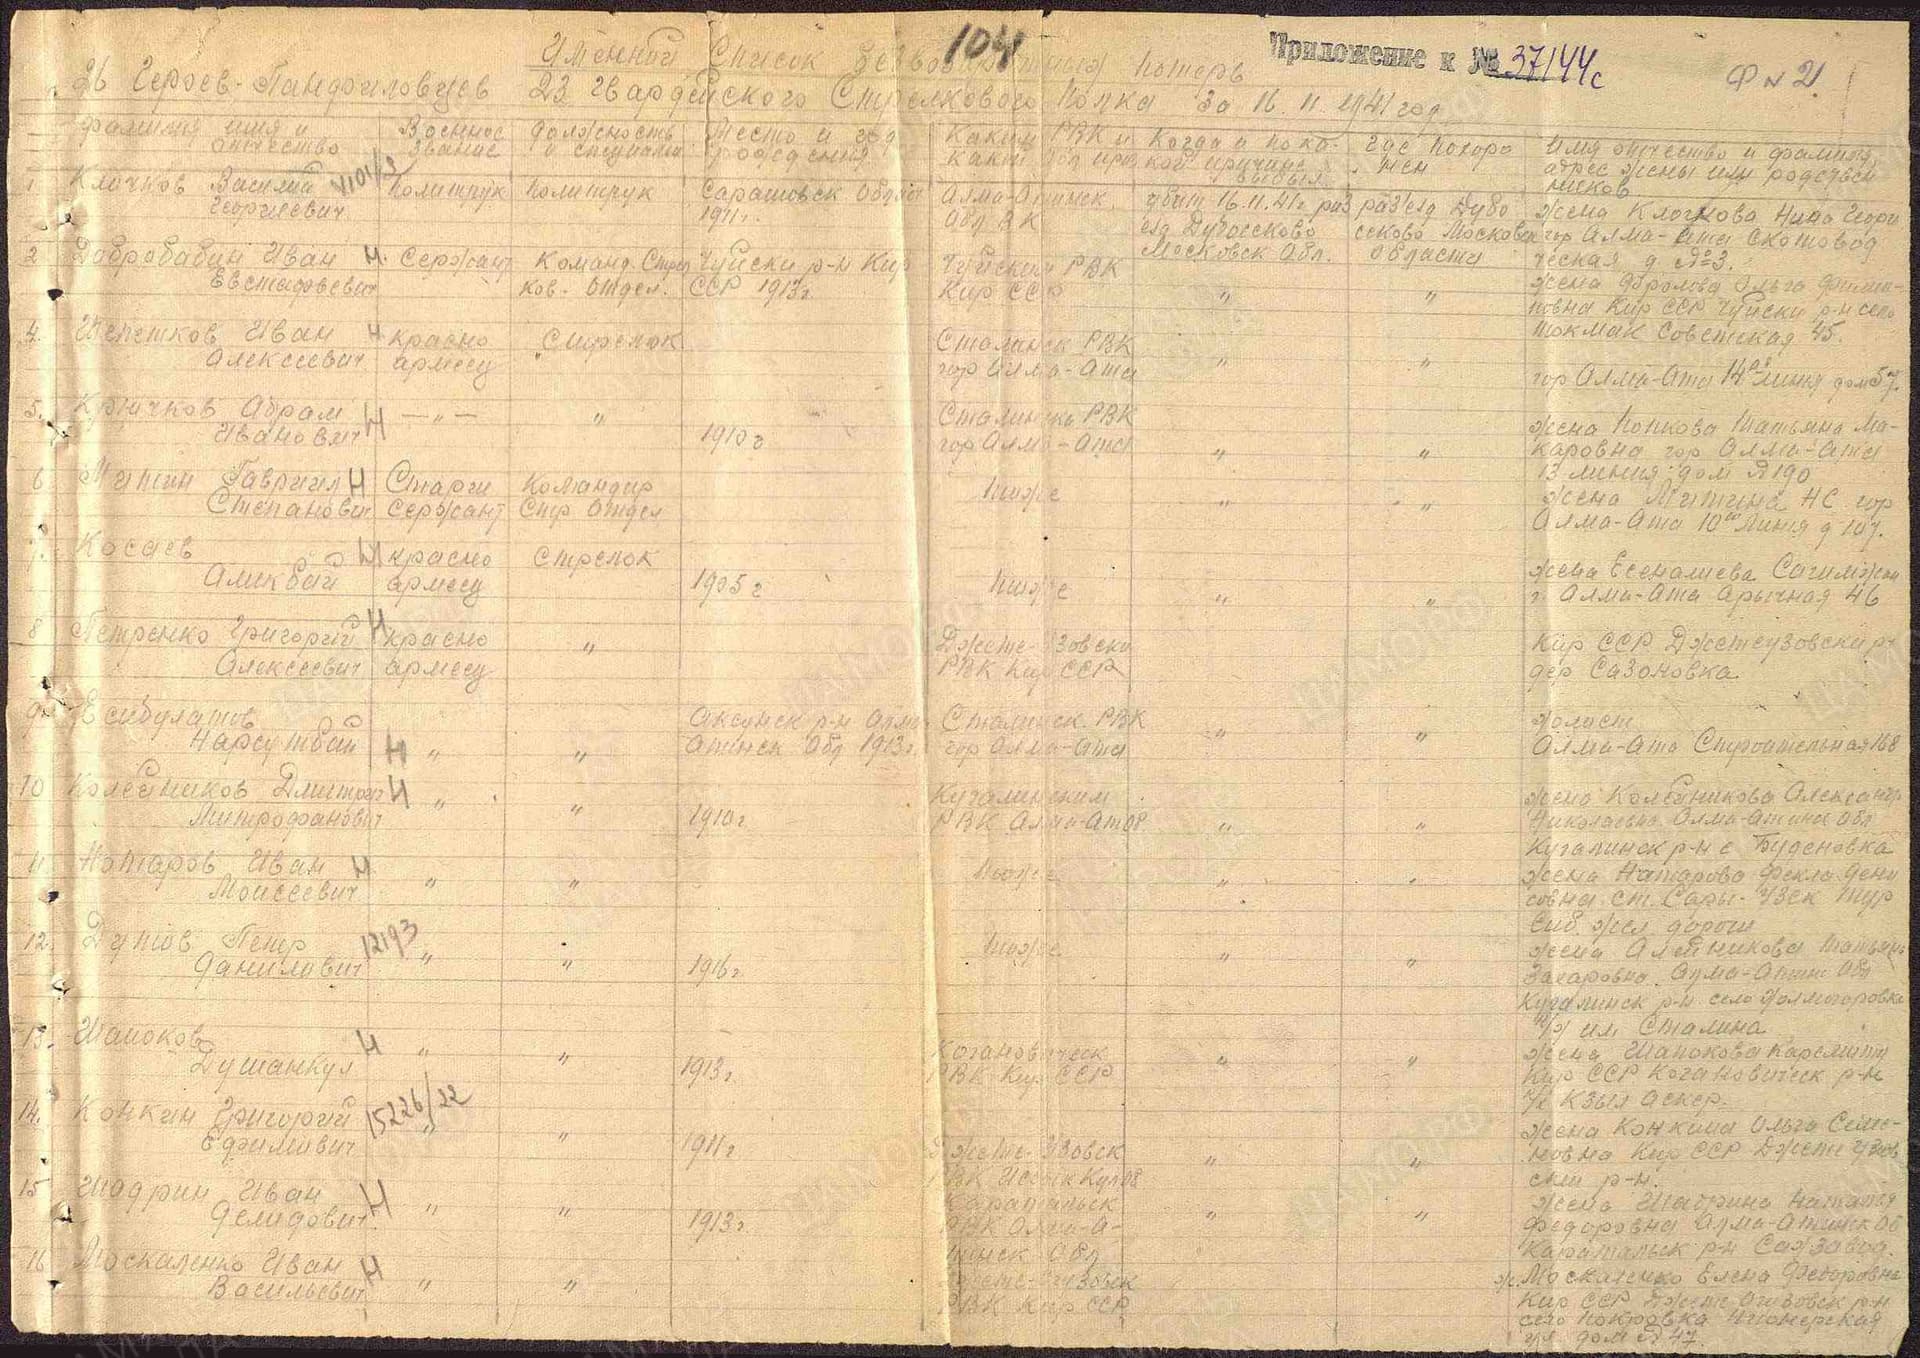 104
Приложение к № 37144с
Ф № 2
Именной Список безвозвратных потерь
28 Героев-Панфиловцев 23 Гвардейского Стрелкового Полка за 16.11.1941 год
Фамилия имя и отчество Военное звание Должность и специальн Место и год рождения Каким РВК и какой обл приз Когда и по какой причине выбыл Где похоронен Имя отчество и фамилия, адрес жены или родственников
1 Клочков Василий Георгиевич 4101/3 Политрук Политрук Саратовск Област 1911 г. Алма-Атинск Обл ВК убит 16.11.41г раз езд Дубосеково Московск Обл. раз'езд Дубосеково Московск области жена Клочкова Нина Георги гор Алма-Ата Скотоводческая д №3.
2 Добробабин Иван Евстафьевич Н. Сержант Команд. Стрелков. Отдел. Чуйски р-н Кир ССР 1913 г. Чуйским РВК Кир ССР " " жена Фролова Ольга Кир ССР Чуйски р-н село Токмак Советская 45.
4. Шепетков Иван Алексеевич Н Красноармеец Стрелок Сталинск РВК гор Алма-Ата " " гор Алма-Ата 14ая линия дом 57.
5. Крючков Абрам Иванович Н — " — " 1910 г Сталинск РВК гор Алма-Ата " " жена Попкова Татьяна Макаровна гор Алма-Ата 13 линия дом №190
6 Митин Гавриил Степанович Н Старши Сержант Командир Стр Отдел тоже " " жена Митина НС гор Алма-Ата 10ая Линия д 107.
7. Косаев Аликбай Н Красноармеец Стрелок 1905 г тоже " " жена Есеналиева г. Алма-Ата Арычная 46
8 Петренко Григорий Алексеевич Н Красноармеец " Джете-Узовски РВК Кир ССР Кир ССР Джетеузовски р-н дер Сазоновка
9 Есибулатов Нарсутбай Н " " Аксайск р-н Алма-Атинск Обл 1913 г. Сталинск. РВК гор Алма-Ата " " холост Алма-Ата Строительная 168
10 Калейников Дмитрий Митрофанович Н " " 1910 г Кугалинским РВК Алма-Ат об " " жена Колейникова Александр Николаевна Алма-Атинс обл Кугалинск р-н с Буденовка
11 Натаров Иван Моисеевич Н " " тоже " " жена Натарова Фекла Денисовна ст. Сары-Узек Турсиб. жел дороги
12. Дутов Петр Данилович 12193 " " 1916 г тоже " " жена Алейникова Татьяна Захаровна Алма-Атинс Обл Кугалинск р-н село Холмогоровка к/х им Сталина
13. Шапоков Душанкул Н " " 1913 г. Когановическ РВК Кир ССР " " жена Шапокова Кир ССР Когановическ р-н к/х Кзыл Аскер.
14. Конкин Григорий Ефимович 15226/22 " " 1911 г Джете-Узовск РВК Иссык Кул об " " жена Конкина Ольга Семеновна Кир ССР Джети Узовский р-н.
15 Шадрин Иван Демидович Н " " 1913 г. Каратальск РВК Алма-Атинск Обл " " жена Шадрина Наталья Федоровна Алма-Атинск об Каратальск р-н Сахзавод.
16 Москаленко Иван Васильевич Н " " Джете-Огузовск РВК Кир ССР ж. Москаленко Елена Федоровна Кир ССР Джети Огузовск р-н село Покровка Пионерская ул. дом №47.